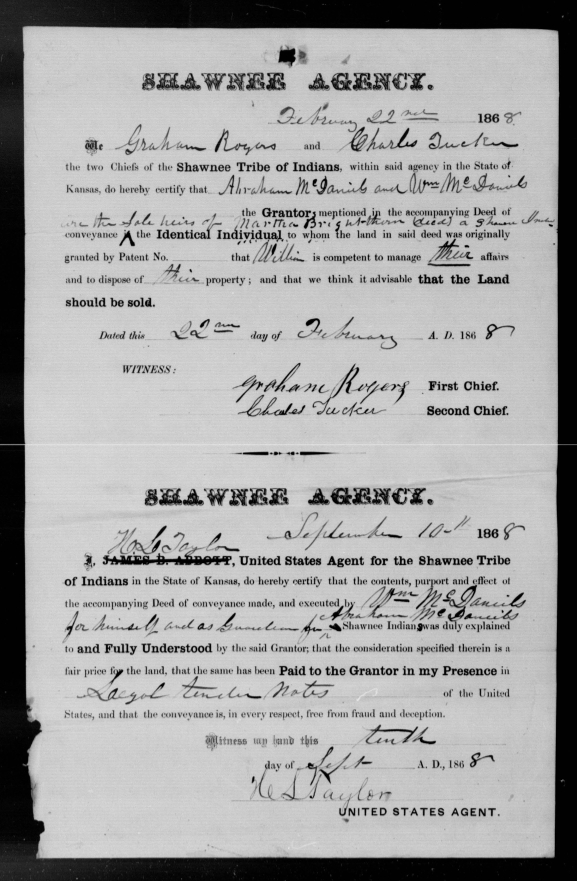 SHAWNEE AGENCY.
February 22nd 1868
We Graham Rogers and Charles Tucker
the two Chiefs of the Shawnee Tribe of Indians, within said agency in the State of
Kansas, do hereby certify that Abraham McDaniels and Wm McDaniels
the Grantors mentioned in the accompanying Deed of
are the Sole heirs of Martha Brighthorn decd a Shawnee
conveyance the Identical Individual to whom the land in said deed was originally
granted by Patent No. that William is competent to manage their affairs
and to dispose of their property; and that we think it advisable that the Land
should be sold.
Dated this 22nd day of February A. D. 1868
WITNESS:
Graham Rogers First Chief.
Charles Tucker Second Chief.
SHAWNEE AGENCY.
September 10th 1868
H L Taylor
I, JAMES B. ABBOTT, United States Agent for the Shawnee Tribe
of Indians in the State of Kansas, do hereby certify that the contents, purport and effect of
the accompanying Deed of conveyance made, and executed by Wm McDaniels
for himself and as Guardian for Abraham McDaniels
Shawnee Indians was duly explained
to and Fully Understood by the said Grantor; that the consideration specified therein is a
fair price for the land, that the same has been Paid to the Grantor in my Presence in
Legal tender Notes of the United
States, and that the conveyance is, in every respect, free from fraud and deception.
Witness my hand this tenth
day of Sept A. D., 1868
H L Taylor
UNITED STATES AGENT.